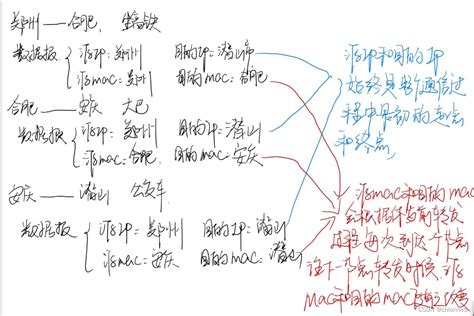 郑州——合肥，坐高铁
数据报 源IP：郑州 目的IP：潜山市
源mac：郑州 目的mac：合肥
合肥——安庆 大巴
数据报 源IP：郑州 目的IP：潜山
源mac：合肥 目的mac：安庆
安庆——潜山 公交车
数据报 源IP：郑州 目的IP：潜山
源mac：安庆 目的mac：潜山
源IP和目的IP
始终是当次通信过
程中最初的起点
和终点，
源mac和目的mac
会根据你当前转发
过程每次到这个节点
往下一节点转发时候，源
mac和目的mac随之改变